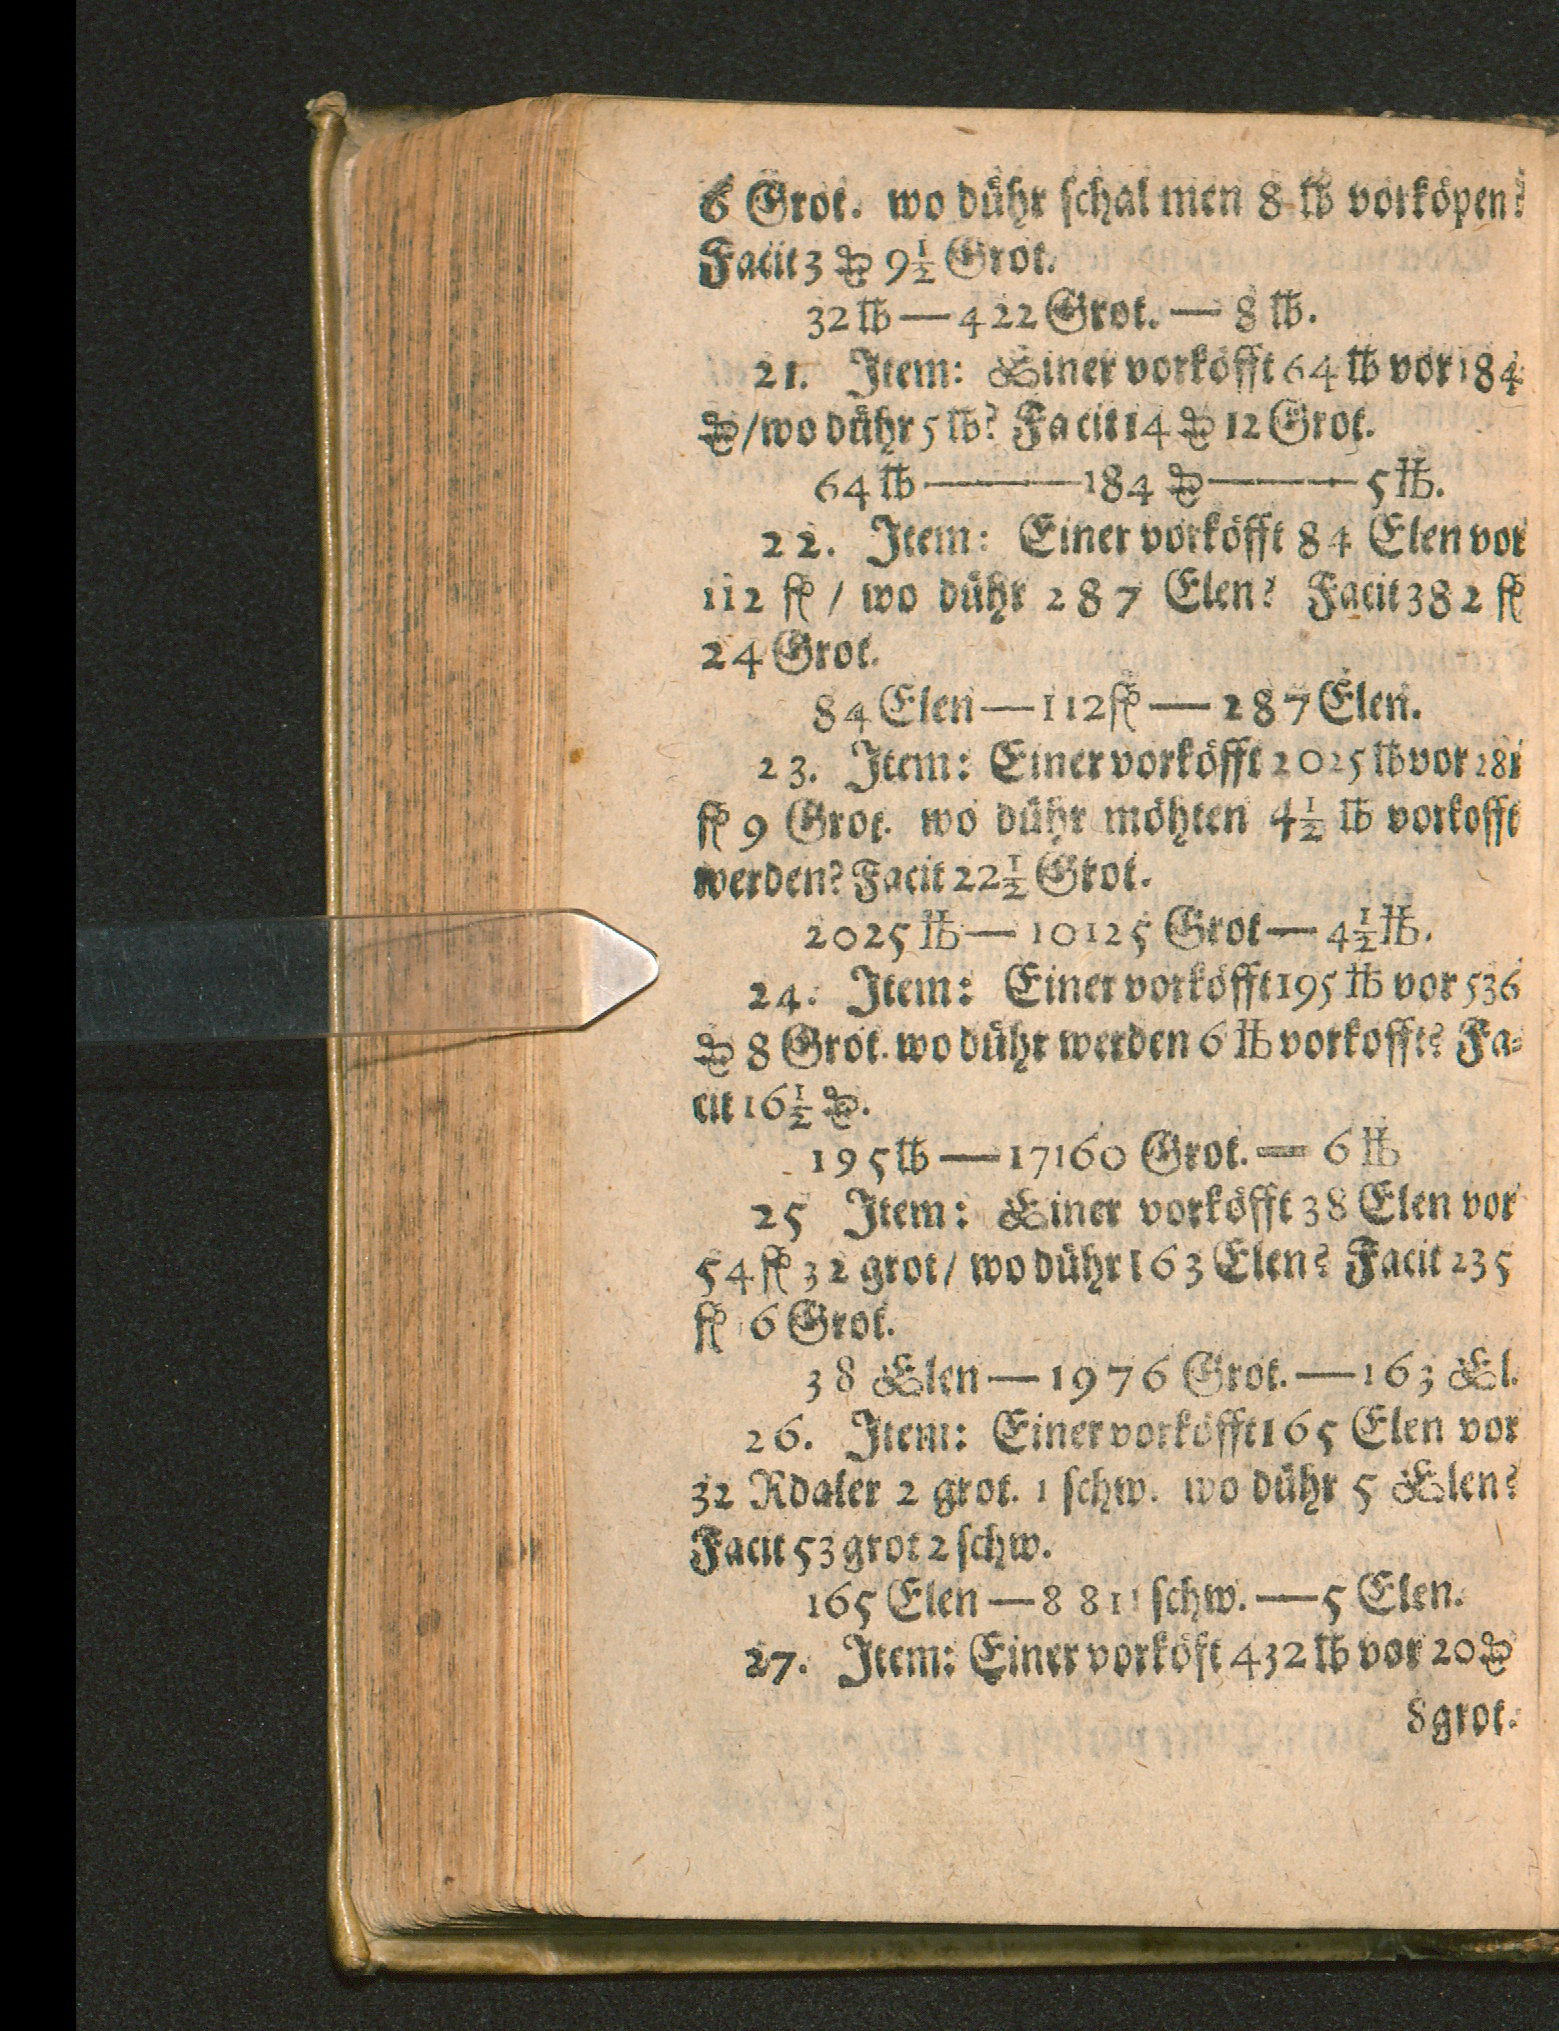 6 Grot. wo dühr schal men 8 lb vorköpen?
Facit 3 ₰ 9½ Grot.
32 lb — 422 Grot. — 8 lb.
21. Item: Einer vorköfft 64 lb vor 184
₰ / wo dühr 5 lb? Facit 14 ₰ 12 Grot.
64 lb ——— 184 ₰ ——— 5 lb.
22. Item: Einer vorköfft 84 Elen vor
112 fl / wo dühr 287 Elen? Facit 382 fl
24 Grot.
84 Elen — 112 fl — 287 Elen.
23. Item: Einer vorköfft 2025 lb vor 281
fl 9 Grot. wo dühr möhten 4½ lb vorkofft
werden? Facit 22½ Grot.
2025 lb — 10125 Grot — 4½ lb.
24. Item: Einer vorköfft 195 lb vor 536
₰ 8 Grot. wo dühr werden 6 lb vorkofft? Fa-
cit 16½ ₰.
195 lb — 17160 Grot. — 6 lb
25 Item: Einer vorköfft 38 Elen vor
54 fl 32 grot / wo dühr 163 Elen? Facit 235
fl 6 Grot.
38 Elen — 1976 Grot. — 163 El.
26. Item: Einer vorköfft 165 Elen vor
32 Rdaler 2 grot. 1 schw. wo dühr 5 Elen?
Facit 53 grot 2 schw.
165 Elen — 8811 schw. — 5 Elen.
27. Item: Einer vorköft 432 lb vor 20 ₰
8 grot.